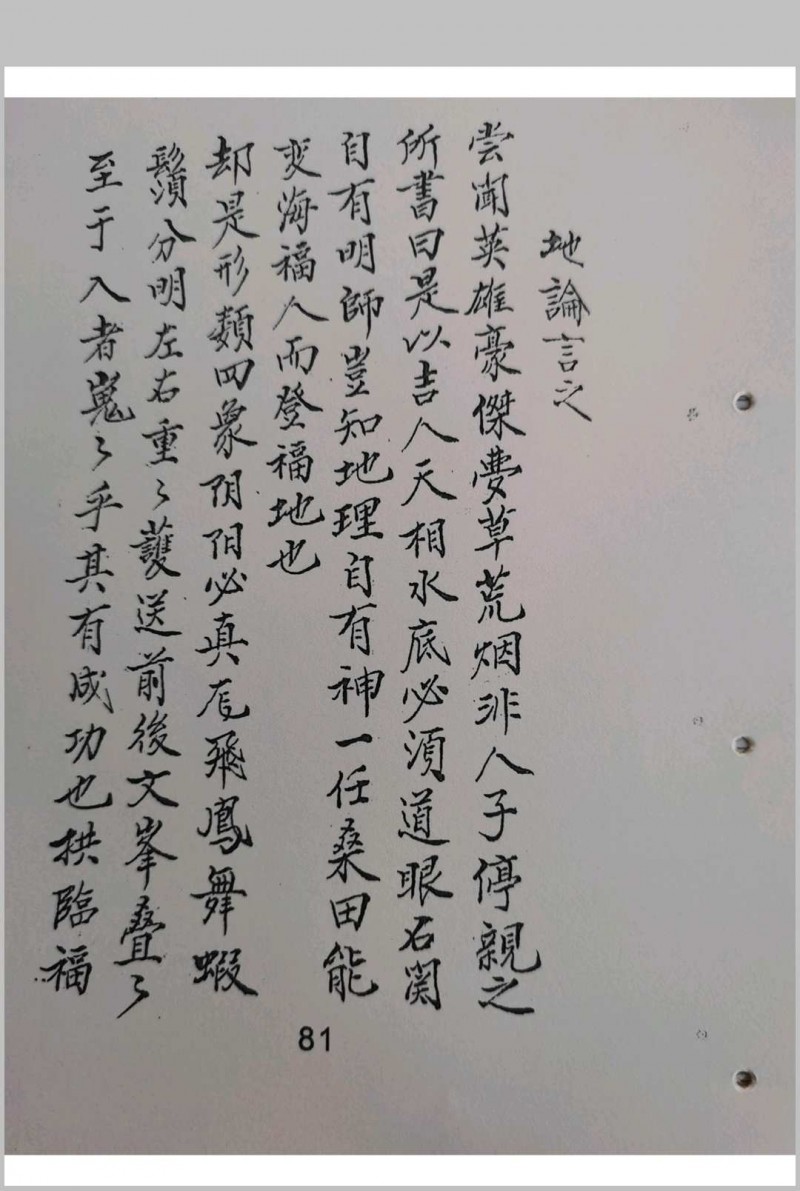 地論言之
尝闻英雄豪傑夢草荒烟非人子停親之
所書曰是以吉人天相水底必须道眼石関
自有明師豈知地理自有神一任桑田能
变海福人而登福地也
却是形類四象阴阳必真龙飛鳳舞蝦
鬚分明左右重〻護送前後文峯疊〻
至于入者嵬〻乎其有成功也拱臨福
81